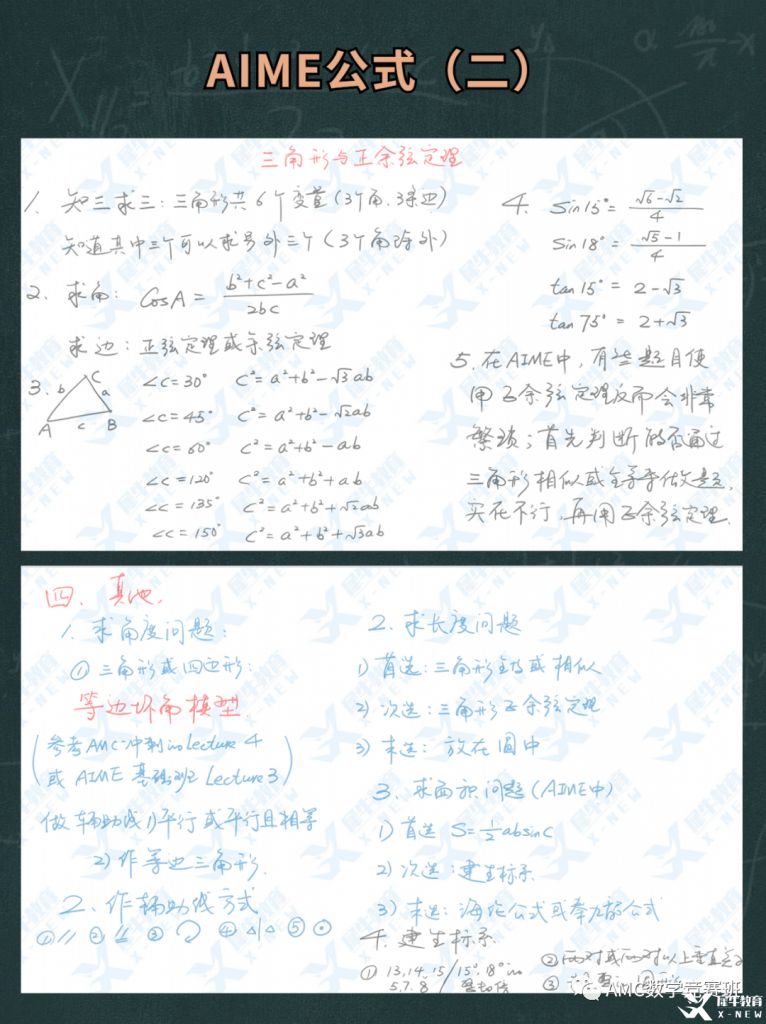 AIME公式（二）
三角形与正余弦定理
1. 知三求三：三角形共6个变量（3个角，3条边）
知道其中三个可以求另外三个（3个角除外）
2. 求角：CosA = (b²+c²-a²)/2bc
求边：正弦定理或余弦定理
3. A B C a b c
∠c=30° c²=a²+b²-√3ab
∠c=45° c²=a²+b²-√2ab
∠c=60° c²=a²+b²-ab
∠c=120° c²=a²+b²+ab
∠c=135° c²=a²+b²+√2ab
∠c=150° c²=a²+b²+√3ab
4. Sin15°= (√6-√2)/4
Sin18°= (√5-1)/4
tan15°= 2-√3
tan75°= 2+√3
5. 在AIME中，有些题目使
用正余弦定理反而会非常
繁琐；首先判断能否通过
三角形相似或全等等做题，
实在不行，再用正余弦定理.
四、其他.
1. 求角度问题：
① 三角形或四边形：
等边坏角模型
（参考AMC冲刺 lecture 4
或 AIME 基础班 Lecture 3）
做辅助线 1) 平行或平行且相等
2) 作等边三角形.
2、作辅助线方式
① // ② ③ ④ ⑤ ⊙
2. 求长度问题
1) 首选：三角形全等或相似
2) 次选：三角形正余弦定理
3) 末选：放在圆中
3、求面积问题（AIME中）
1) 首选 S=½absinC
2) 次选：建坐标系
3) 末选：海伦公式或奔力的公式
4. 建坐标系
① 13,14,15 / 15°,18°
5.7.8
② 两对或两对以上垂直
③
AMC数学竞赛班
犀牛教育
X-NEW